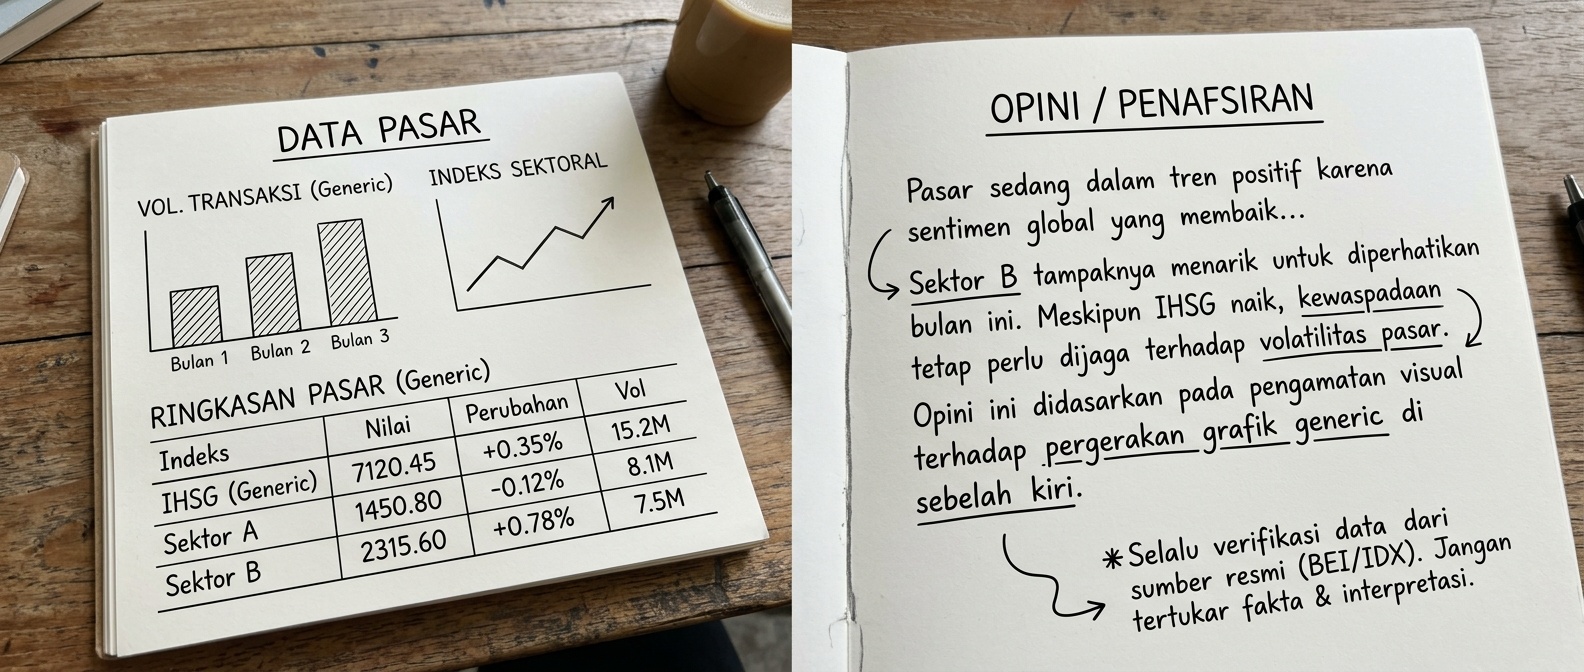 DATA PASAR
VOL. TRANSAKSI (Generic)
Bulan 1
Bulan 2
Bulan 3
INDEKS SEKTORAL
RINGKASAN PASAR (Generic)
Indeks Nilai Perubahan Vol
IHSG (Generic) 7120.45 +0.35% 15.2M
Sektor A 1450.80 -0.12% 8.1M
Sektor B 2315.60 +0.78% 7.5M
OPINI / PENAFSIRAN
Pasar sedang dalam tren positif karena
sentimen global yang membaik...
Sektor B tampaknya menarik untuk diperhatikan
bulan ini. Meskipun IHSG naik, kewaspadaan
tetap perlu dijaga terhadap volatilitas pasar.
Opini ini didasarkan pada pengamatan visual
terhadap pergerakan grafik generic di
sebelah kiri.
*Selalu verifikasi data dari
sumber resmi (BEI/IDX). Jangan
tertukar fakta & interpretasi.